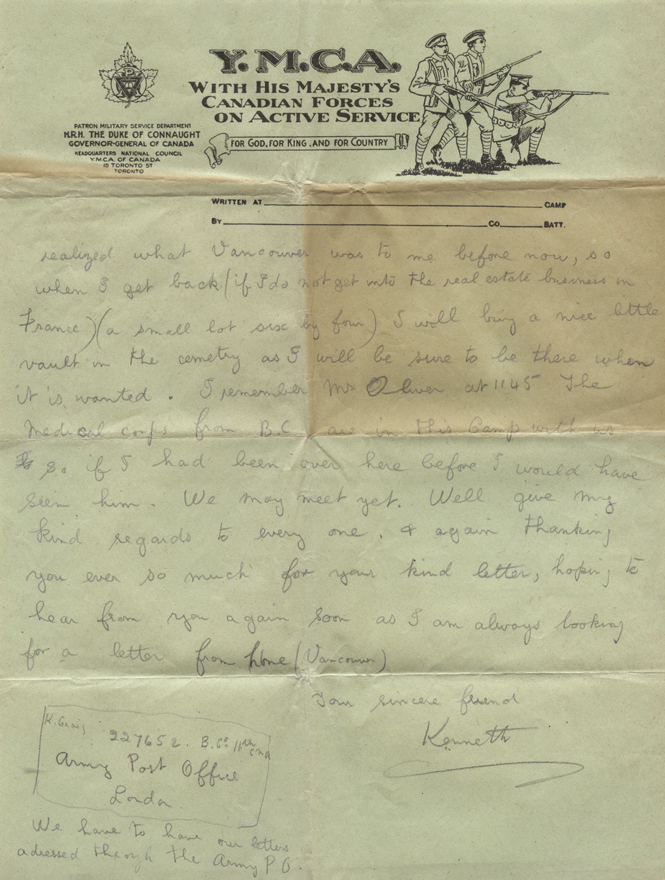 Y.M.C.A.
WITH HIS MAJESTY'S
CANADIAN FORCES
ON ACTIVE SERVICE
FOR GOD, FOR KING, AND FOR COUNTRY
PATRON MILITARY SERVICE DEPARTMENT
H.R.H. THE DUKE OF CONNAUGHT
GOVERNOR-GENERAL OF CANADA
HEADQUARTERS NATIONAL COUNCIL
Y.M.C.A. OF CANADA
15 TORONTO ST
TORONTO
WRITTEN AT CAMP
BY CO. BATT.
realized what Vancouver was to me before now, so
when I get back (if I do not get into the real estate business in
France) (a small lot six by four) I will buy a nice little
vault in the cemetry as I will be sure to be there when
it is wanted. I remember Mr Oliver at 1145 The
Medical corps from B.C. are in this Camp with us
so if I had been over here before I would have
seen him. We may meet yet. Well give my
kind regards to every one, & again thanking
you ever so much for your kind letter, hoping to
hear from you again soon as I am always looking
for a letter from home (Vancouver)
Your sincere friend
Kenneth
K. 227652. B. Co 11th
Army Post Office
London
We have to have our letters
adressed through the Army P O.